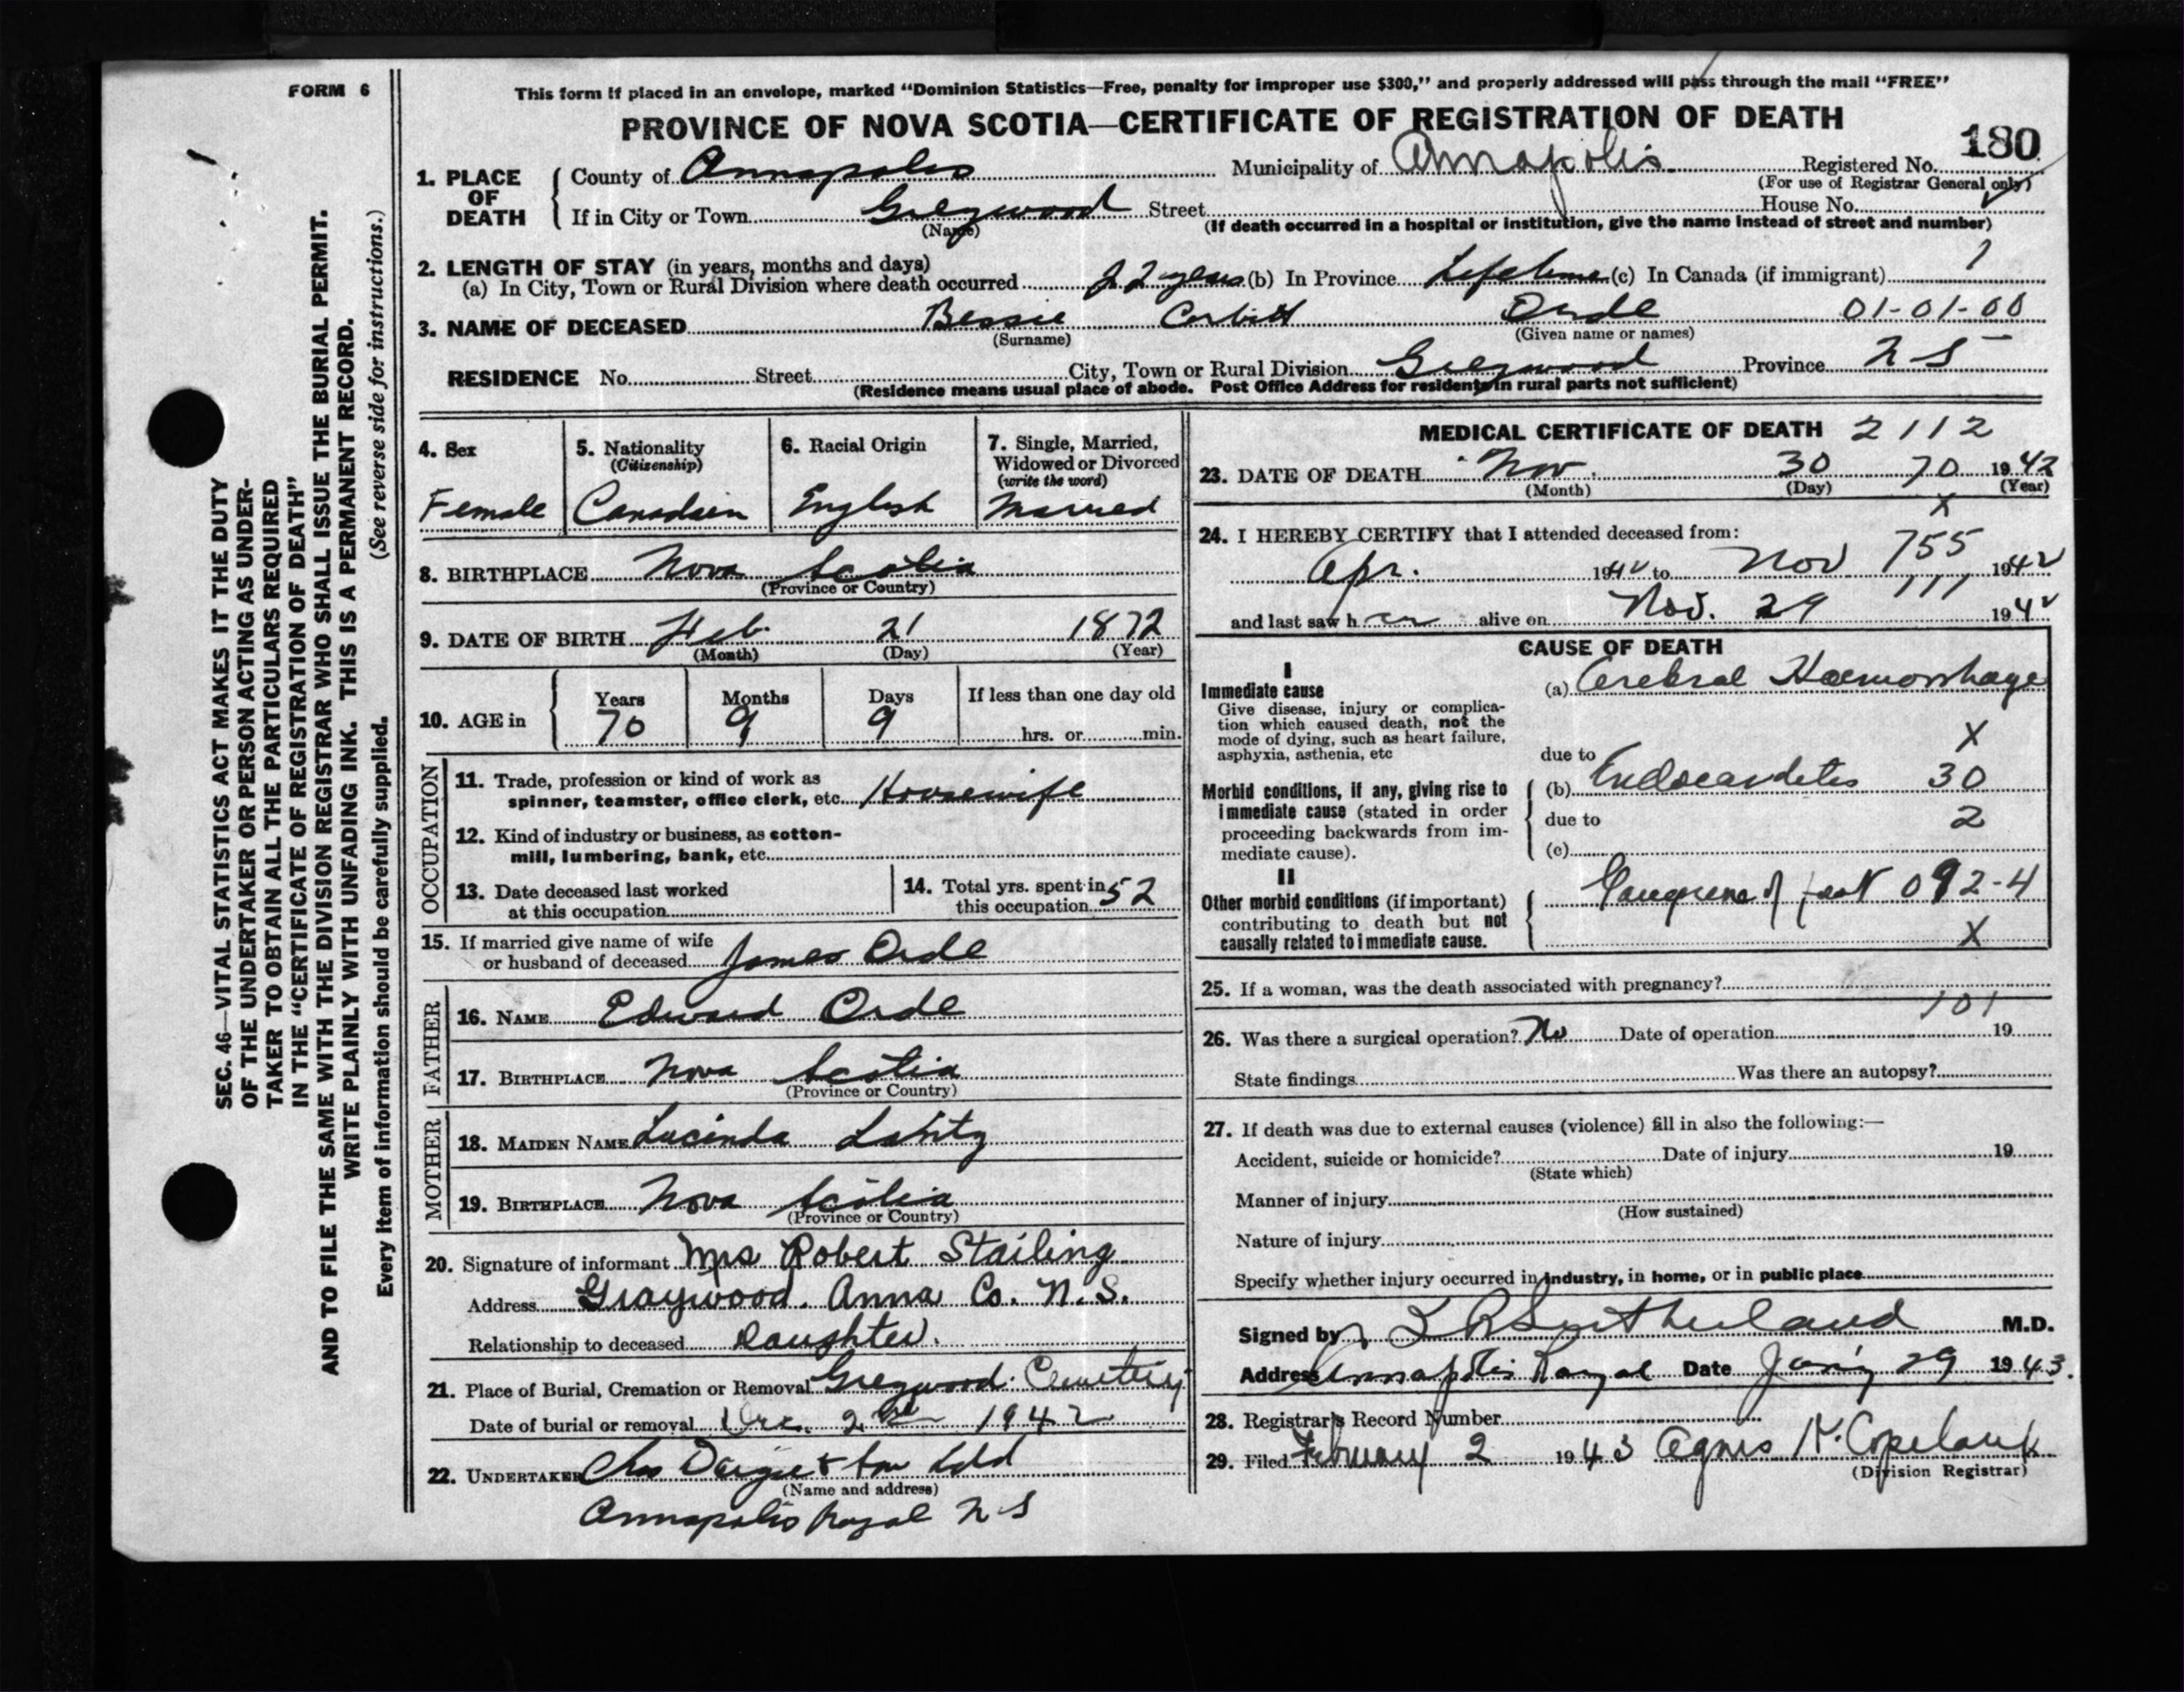 FORM 6
This form if placed in an envelope, marked “Dominion Statistics—Free, penalty for improper use $300,” and properly addressed will pass through the mail “FREE”
PROVINCE OF NOVA SCOTIA—CERTIFICATE OF REGISTRATION OF DEATH
180
1. PLACE OF DEATH
County of Annapolis Municipality of Annapolis Registered No.
(For use of Registrar General only)
If in City or Town Greywood Street House No.
(Name) (If death occurred in a hospital or institution, give the name instead of street and number)
2. LENGTH OF STAY (in years, months and days)
(a) In City, Town or Rural Division where death occurred years (b) In Province Lifetime (c) In Canada (if immigrant) 1
3. NAME OF DECEASED Bessie Corbitt Orde 01-01-00
(Surname) (Given name or names)
RESIDENCE No. Street City, Town or Rural Division Greywood Province N S
(Residence means usual place of abode. Post Office Address for residents in rural parts not sufficient)
4. Sex
Female
5. Nationality
(Citizenship)
Canadian
6. Racial Origin
English
7. Single, Married,
Widowed or Divorced
(write the word)
Married
8. BIRTHPLACE Nova Scotia
(Province or Country)
9. DATE OF BIRTH Feb. 21 1872
(Month) (Day) (Year)
10. AGE in
Years Months Days If less than one day old
70 9 9 hrs. or min.
OCCUPATION
11. Trade, profession or kind of work as
spinner, teamster, office clerk, etc. Housewife
12. Kind of industry or business, as cotton-
mill, lumbering, bank, etc.
13. Date deceased last worked
at this occupation
14. Total yrs. spent in
this occupation 52
15. If married give name of wife
or husband of deceased James Orde
FATHER
16. NAME Edward Orde
17. BIRTHPLACE Nova Scotia
(Province or Country)
MOTHER
18. MAIDEN NAME Lucinda
19. BIRTHPLACE Nova Scotia
(Province or Country)
20. Signature of informant Mrs Robert Stailing
Address Graywood. Anna Co. N.S.
Relationship to deceased Daughter.
21. Place of Burial, Cremation or Removal Greywood Cemetery
Date of burial or removal Dec. 2nd 1942
22. UNDERTAKER Chas Dargie & Son Ltd
(Name and address)
Annapolis Royal N S
MEDICAL CERTIFICATE OF DEATH 2112
23. DATE OF DEATH Nov. 30 70 1942
(Month) (Day) (Year)
X
24. I HEREBY CERTIFY that I attended deceased from:
755
Apr. 1942 to Nov 1942
111
and last saw her alive on Nov. 29 1942
CAUSE OF DEATH
I
Immediate cause
Give disease, injury or complica-
tion which caused death, not the
mode of dying, such as heart failure,
asphyxia, asthenia, etc
(a) Cerebral Haemorrhage
X
due to
Morbid conditions, if any, giving rise to
immediate cause (stated in order
proceeding backwards from im-
mediate cause).
(b) Endocarditis 30
due to 2
(c)
II
Other morbid conditions (if important)
contributing to death but not
causally related to immediate cause.
Gangrene of foot 092-4
X
25. If a woman, was the death associated with pregnancy?
101
26. Was there a surgical operation? No Date of operation 19
State findings Was there an autopsy?
27. If death was due to external causes (violence) fill in also the following:—
Accident, suicide or homicide? Date of injury 19
(State which)
Manner of injury
(How sustained)
Nature of injury
Specify whether injury occurred in industry, in home, or in public place
Signed by Sutherland M.D.
Address Annapolis Royal Date Jan'y 29 1943.
28. Registrar's Record Number
29. Filed February 2 1943 Agnes Copeland
(Division Registrar)
SEC. 46—VITAL STATISTICS ACT MAKES IT THE DUTY
OF THE UNDERTAKER OR PERSON ACTING AS UNDER-
TAKER TO OBTAIN ALL THE PARTICULARS REQUIRED
IN THE “CERTIFICATE OF REGISTRATION OF DEATH”
AND TO FILE THE SAME WITH THE DIVISION REGISTRAR WHO SHALL ISSUE THE BURIAL PERMIT.
WRITE PLAINLY WITH UNFADING INK. THIS IS A PERMANENT RECORD.
Every item of information should be carefully supplied. (See reverse side for instructions.)